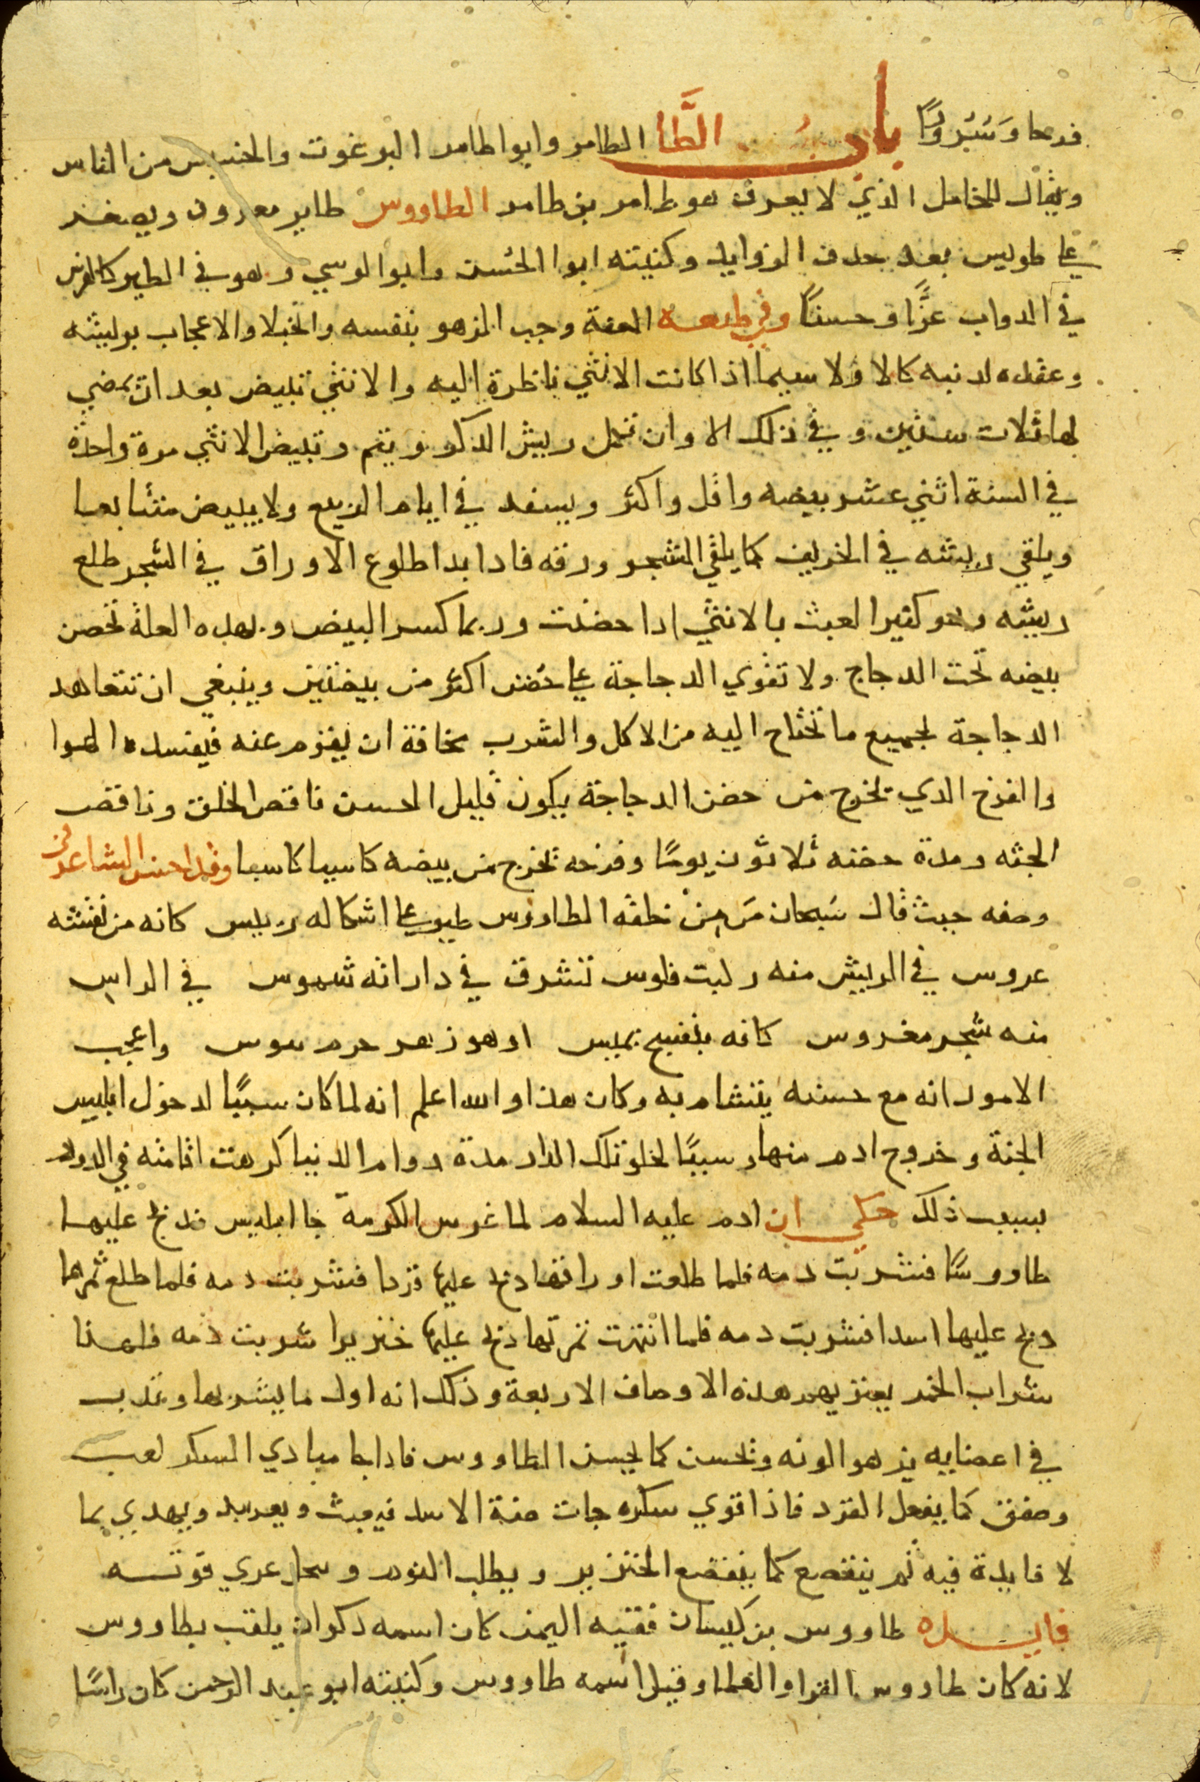 فرحا وسرورًا باب الطَّا الطامر وابو اطامر البرغوت والخسيس من الناس
ويقال للخامل الذي لا يعرف هو طامر بن طامر الطاووس طاير معروف ويصغر
على طويس بعد حدف الزوايد وكنيته ابو الحُسن وابو الوسي وهو في الطير كالفرس
في الدواب عزًّا وحسنًا وفي طبعه العفة وحب الزهو بنفسه والخيلا والاعجاب بريشه
وعقده لدنبه كالا ولا سيما اذا كانت الانثي ناظرة اليه والانثي تبيض بعد ان يمضي
لها ثلات سنين وفي ذلك الاوان تكمل ريش الدكر ويتم وتبيض الانثي مرة واحدة
في السنة اثني عشر بيضه واقل واكثر ويسفد في ايام الربيع ولا يبيض متتابعا
ويلقي ريشه في الخريف كما يلقي الشجر ورقه فادا بدا طلوع الاوراق في الشجر طلع
ريشه وهو كثير العبث بالانثي ادا حضنت وربما كسر البيض وبهده العلة تحضن
بيضه تحت الدجاج ولا تقوي الدجاجة على حضن اكثر من بيضتين وينبغي ان تتعاهد
الدجاجة لجميع ما تحتاج اليه من الاكل والشرب مخافة ان يقوم عنه فيفسده الهوا
والفرخ الدي يخرج من حضن الدجاجة يكون قليل الحسن ناقص الخلق وناقص
الجثه ومدة حضنه ثلاثون يومًا وفرخه تخرج من بيضه كاسيا كاسبا وقد احسن الشاعر في
وصفه حيث قال سُبحان مَن مِنْ خلقه الطاووس طير على اشكاله رييس كانه من نقشه
عروس في الريش منه ركبت فلوس تشرق في داراته شموس في الراس
منه شجر مغروس كانه بنفسج يميس او هو زهر حرم يبوس واعجب
الامور انه مع حسنه يتشام به وكان هذا والله اعلم انه لما كان سببًا لدخول ابليس
الجنة وخروج ادم منها وسببًا لخلو تلك الدار مدة دوام الدنيا كرهت اقامته في الدور
بسبب ذلك حكي ان ادم عليه السلام لما غرس الكرمة جا ابليس فدبح عليها
طاووسًا فشربت دمه فلما طلعت اوراقها دبح عليها قردا فشربت دمه فلما طلع ثمرها
دبح عليها اسدا فشربت دمه فلما انتهت ثمرتها دبح عليها خنزيرا شربت دمه فلهذا
شراب الخمر يعتريهم هذه الاوصاف الاربعة وذلك انه اول ما يشربها وتدب
في اعضايه يزهو الونه وتحسن كما يحسن الطاووس فادا جا مبادي السكر لعب
وصفق كما يفعل القرد فاذا قوي سكره جات صفة الاسد فيعبث ويعربد ويهدي بما
لا فايدة فيه ثم يتقعص كما يتقعص الخنزير ويطلب النوم وتنحل عري قوته
فايده طاووس بن كيسان فقيه اليمن كان اسمه دكوان يلقب بطاووس
لانه كان طاووس القرا والعلما وقيل اسمه طاووس وكنيته ابو عبد الرحمن كان راسًا